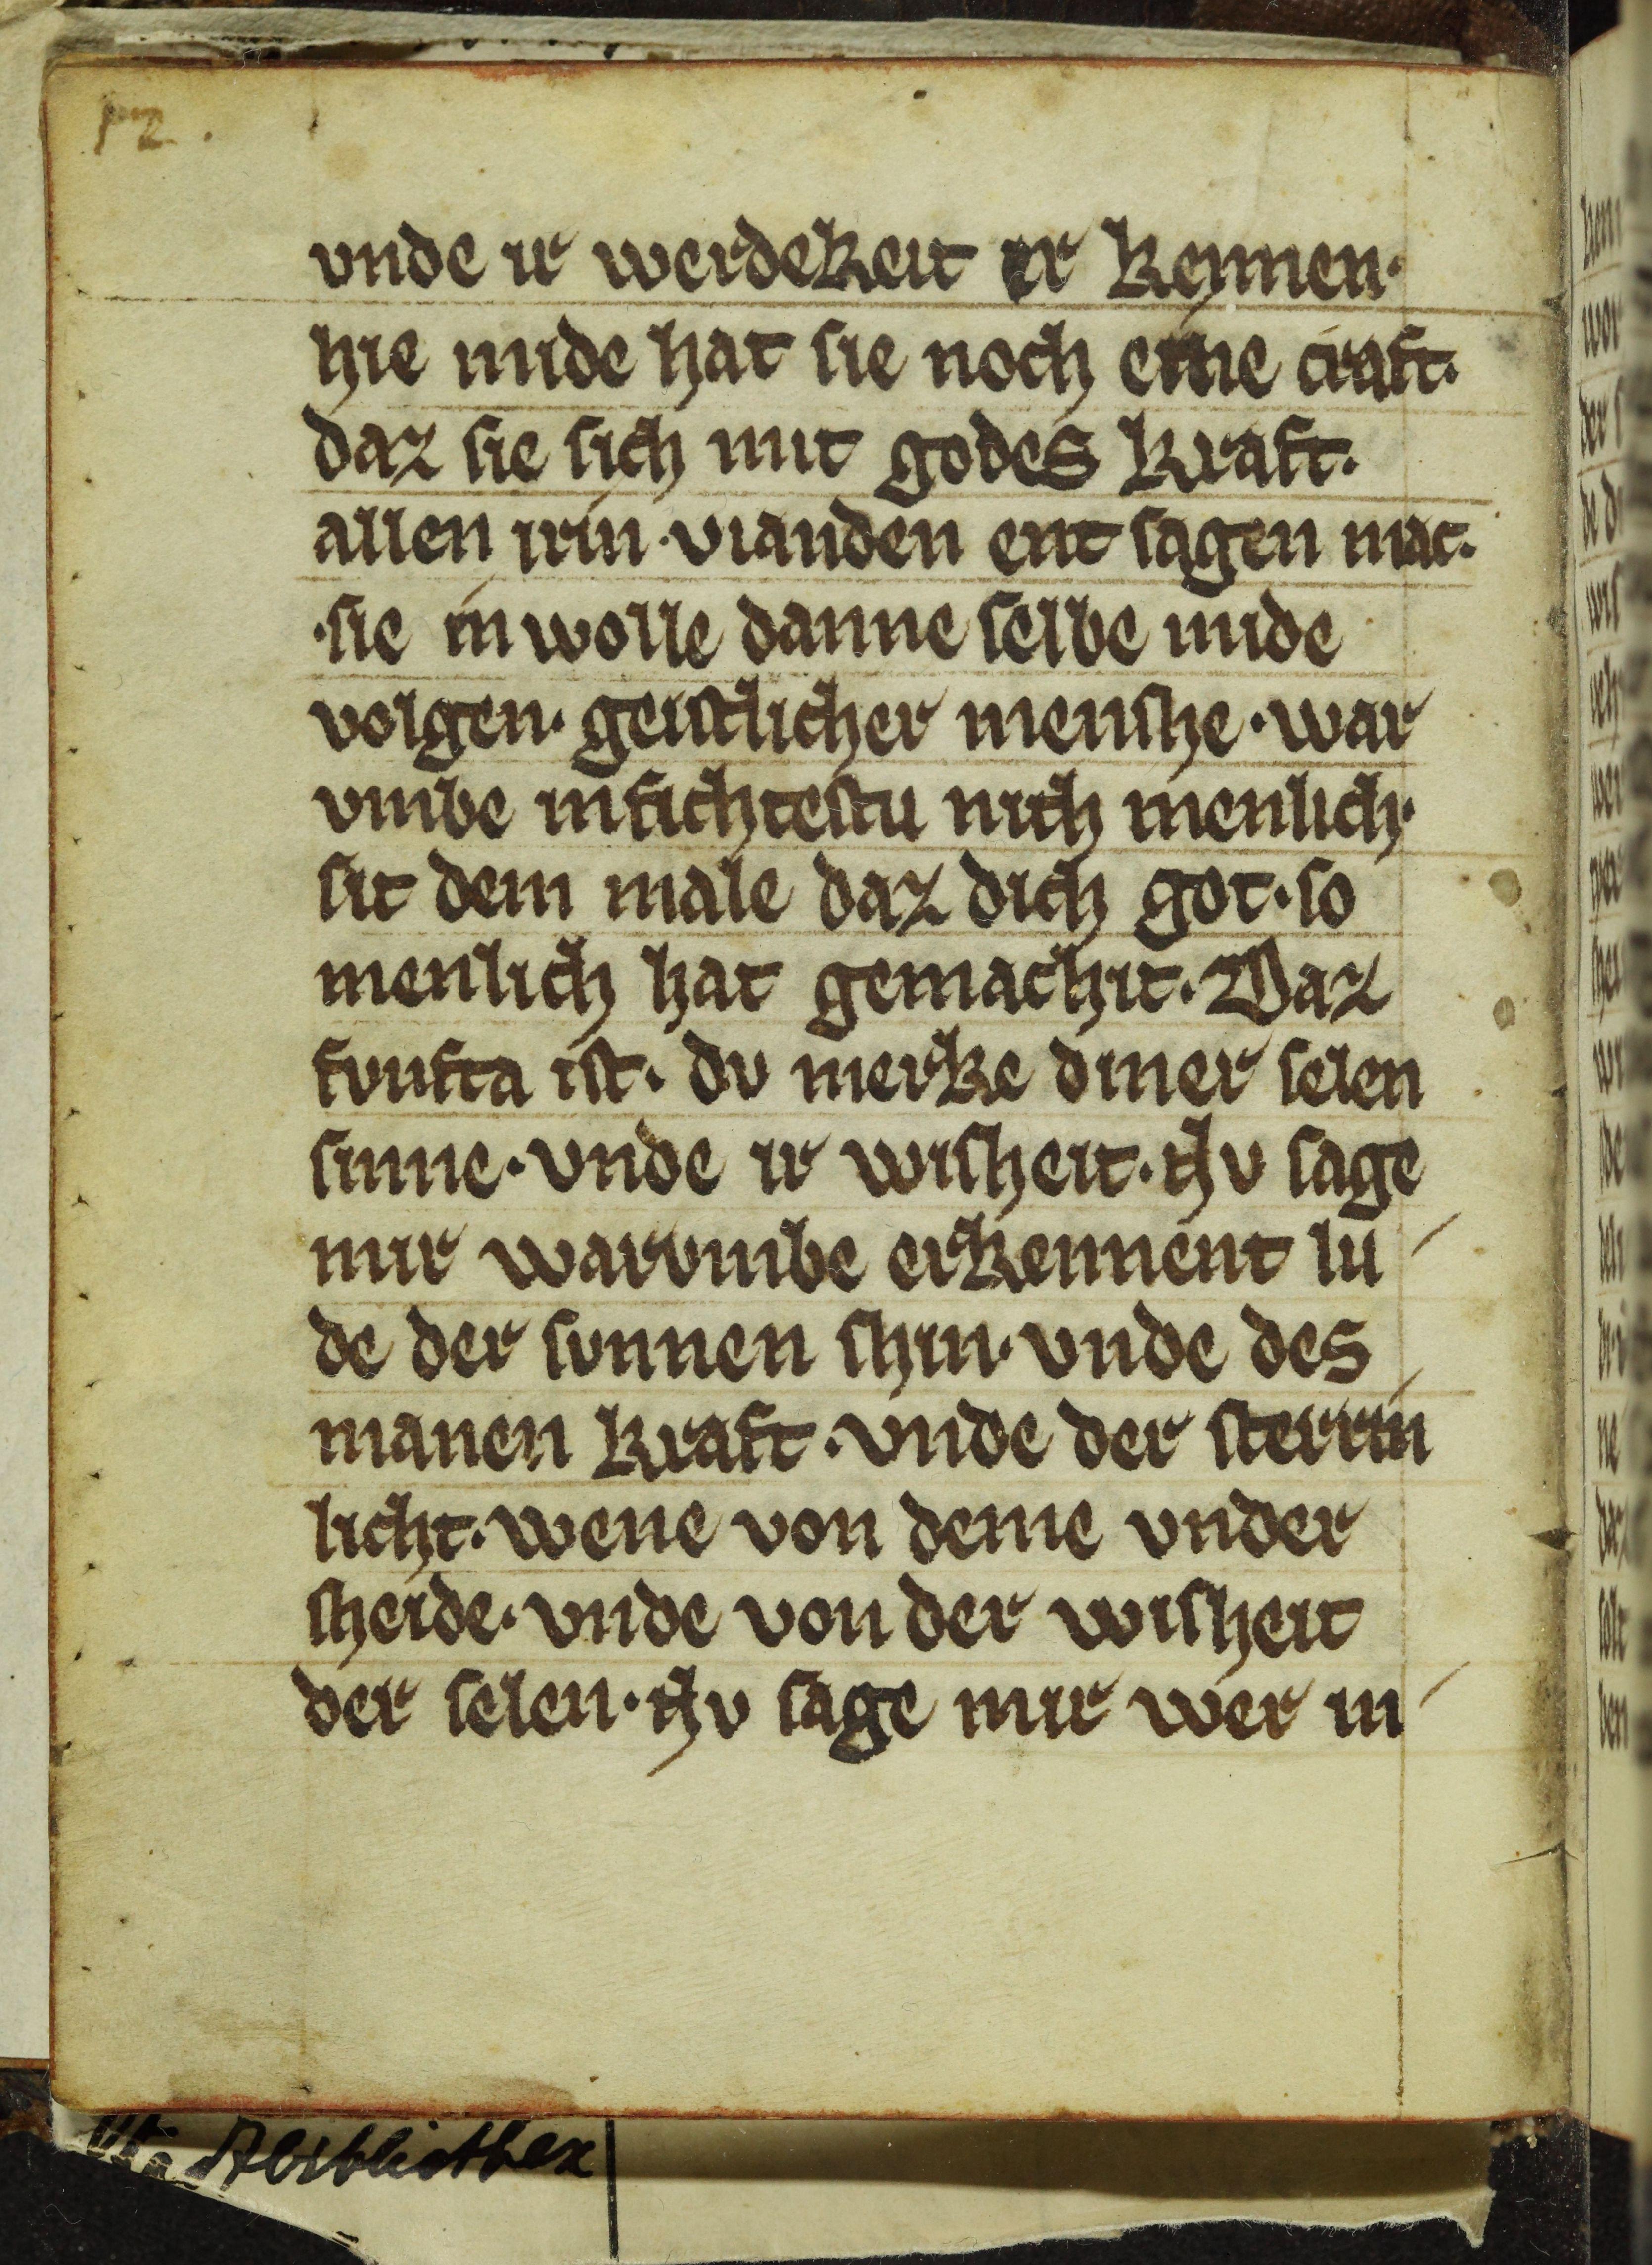 vnde ir werdekeit er kennen·
hie mide hat sie noch eine craft·
daz sie sich mit godes kraft·
allen irin·vianden ent sagen mac·
·sie in wolle danne selbe mide
volgen·geistlicher menshe·war
vmbe infichtestu nich menlich·
sit dem male daz dich got·so
menlich hat gemachit·Daz
funfta ist·dv merke diner selen
sinne·vnde ir wisheit·Nv sage
mir warvmbe erkennent lu
de der sunnen shin·vnde des
manen kraft·vnde der sterrin
licht·wene von deme vnder
sheide·vnde von der wisheit
der selen·Nv sage mir wer in
Abibliothek